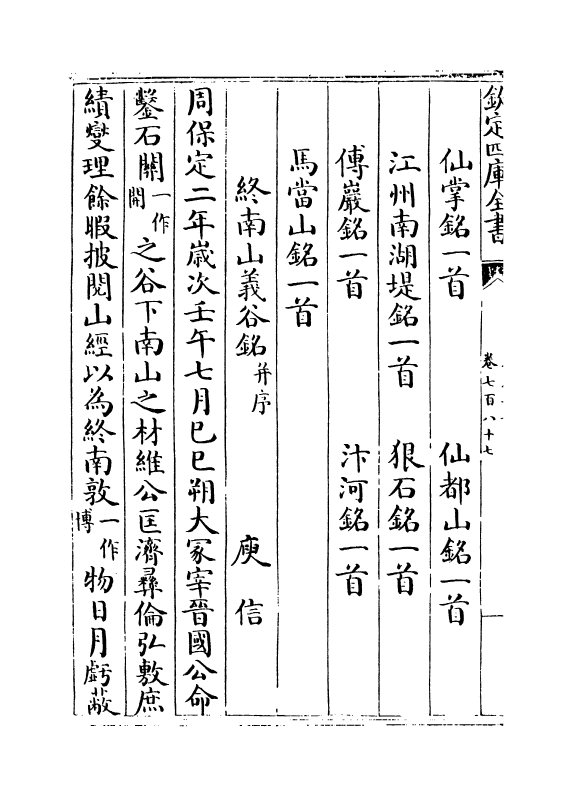 欽定四庫全書
卷七百八十七
仙掌銘一首　仙都山銘一首
江州南湖堤銘一首　狠石銘一首
傅巖銘一首　汴河銘一首
馬當山銘一首
終南山義谷銘并序　庾信
周保定二年歲次壬午七月己巳朔大冢宰晉國公命
鑿石關一作開之谷下南山之材維公匡濟彛倫弘敷庶
績燮理餘暇披閱山經以為終南敦一作博物日月虧蔽